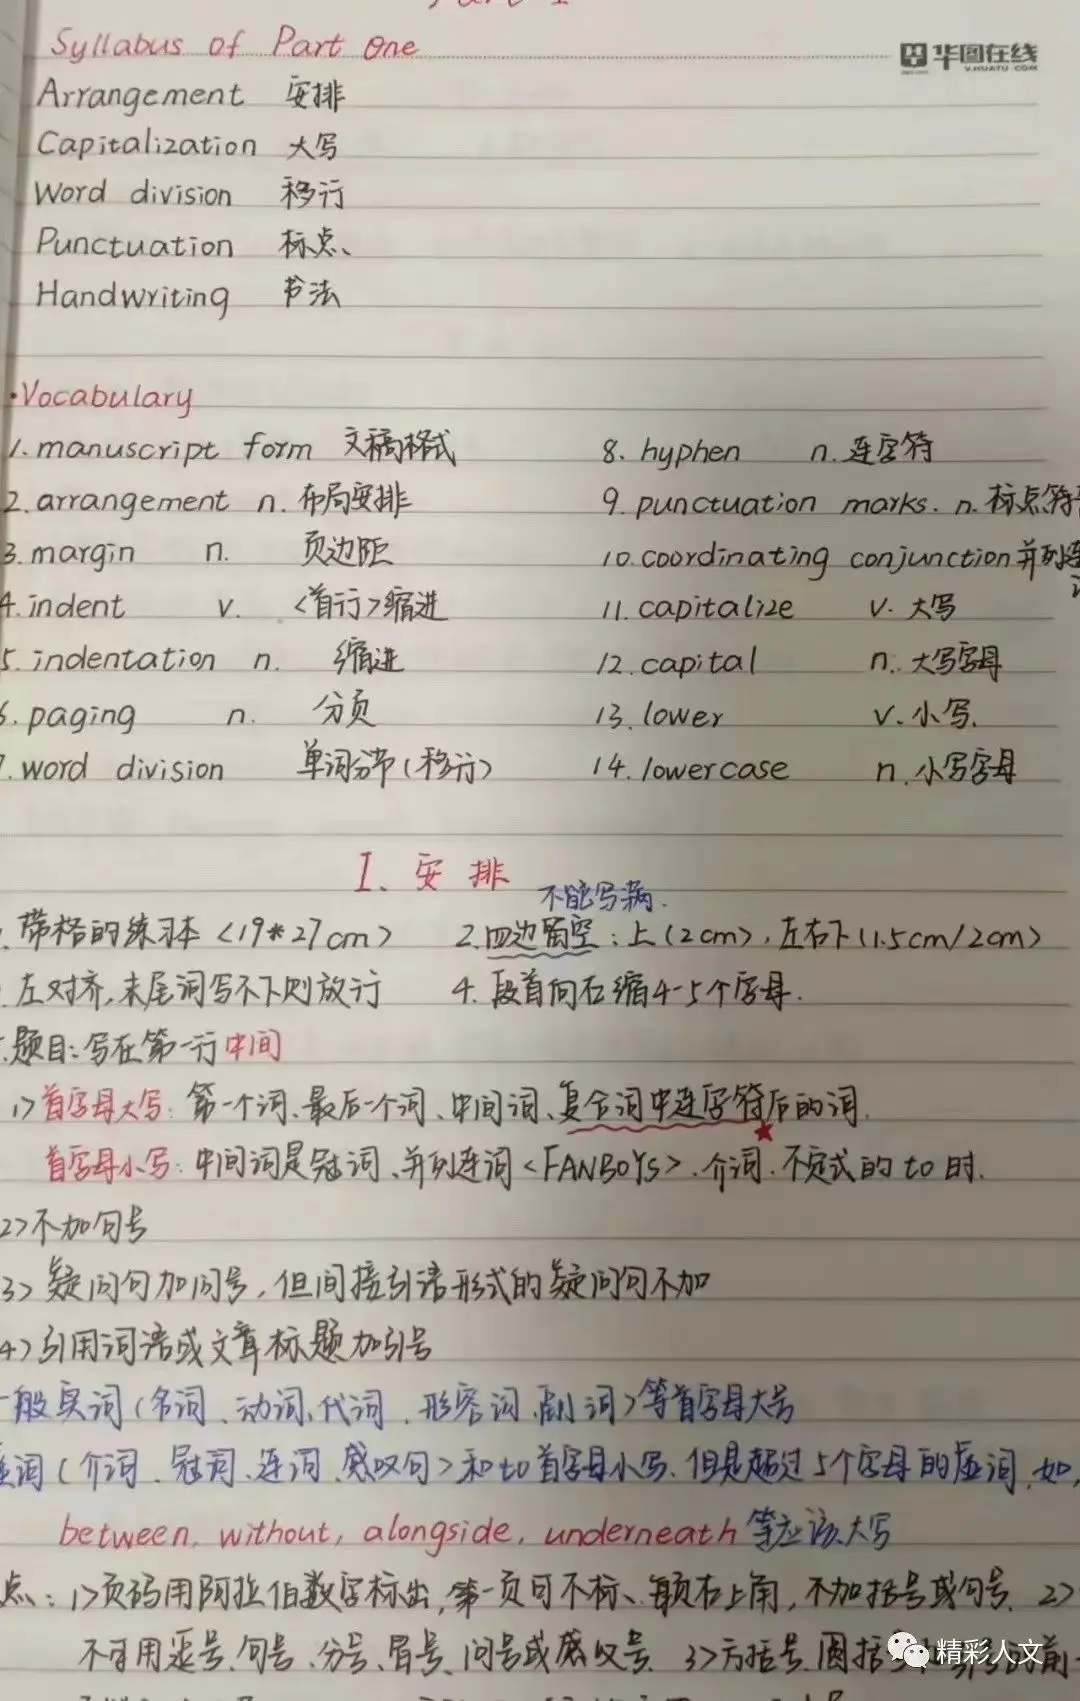 Syllabus of Part One
华图在线
V.HUATU.COM
Arrangement 安排
Capitalization 大写
Word division 移行
Punctuation 标点、
Handwriting 书法
·Vocabulary
1. manuscript form 文稿格式 8. hyphen n. 连字符
2. arrangement n. 布局安排 9. punctuation marks. n. 标点符
3. margin n. 页边距 10. coordinating conjunction 并列连
4. indent v. <首行>缩进 11. capitalize v. 大写
5. indentation n. 缩进 12. capital n. 大写字母
6. paging n. 分页 13. lower v. 小写.
7. word division 单词分节(移行) 14. lowercase n. 小写字母
I. 安排
不能写满.
带格的练习本<19*27cm> 2. 四边留空:上(2cm),左右下(1.5cm/2cm)
左对齐,末尾词写不下则放行 4. 段首向右缩4-5个字母.
题目:写在第一行中间
1>首字母大写:第一个词、最后一个词、中间词、复合词中连字符后的词.
首字母小写:中间词是冠词、并列连词<FANBOYS>、介词.不定式的to时.
2>不加句号
3>疑问句加问号,但间接引语形式的疑问句不加
4>引用词语或文章标题加引号
一般实词(名词、动词、代词、形容词、副词>等首字母大号
虚词(介词、冠词、连词、感叹句>和to首字母小写.但是超过5个字母的虚词,如,
between, without, alongside, underneath等应该大写
点:1>页码用阿拉伯数字标出,第一页可不标、每页右上角,不加括号或句号. 2>
不可用逗号、句号、分号、冒号、问号或感叹号. 3>方括号、圆括
精彩人文